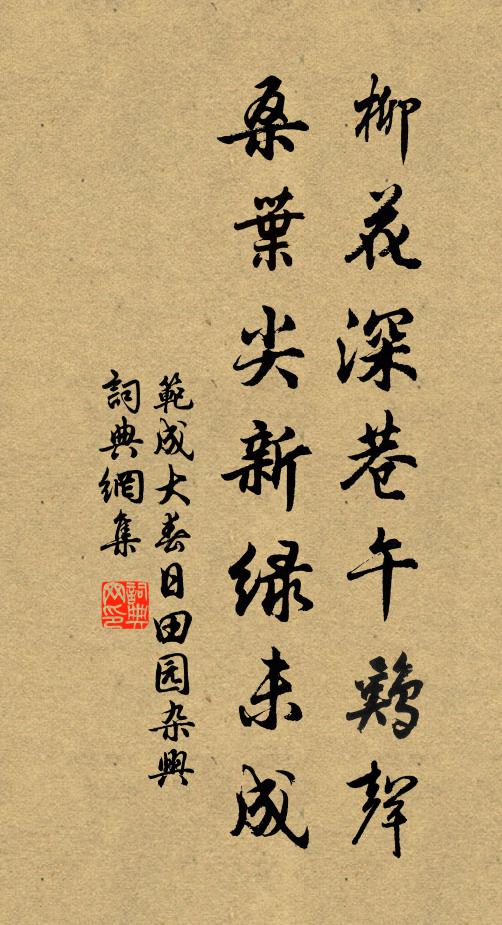 柳花深巷午鷄聲
桑葉尖新绿未成
範成大春日田园杂興
詞典網集
詞典網印